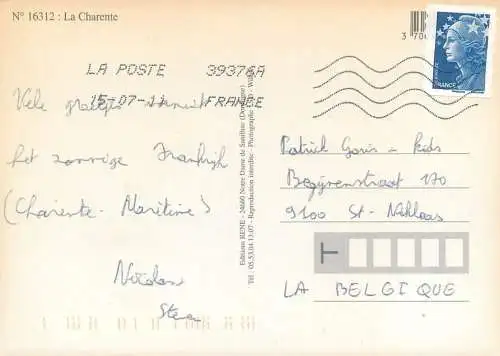 N° 16312 : La Charente
3 70
LA POSTE 39376A
15-07-11 FRANCE
FRANCE
Vele groetjes vanuit
het zonnige Frankrijk
(Charente - Maritime)
Nicolas
Editions RENE - 24660 Notre Dame de Sanilhac (Dordogne)
Tél. : 05.53.04.13.07 - Reproduction interdite - Photographie
Patrick Goris - kids
Begijnenstraat 170
9100 St-Niklaas
T
LA BELGIQUE